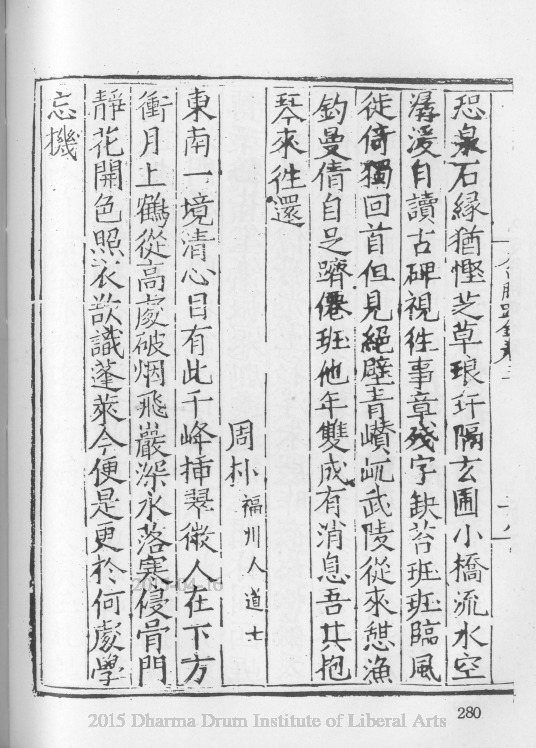 恐泉石緣猶慳芝草琅玕隔玄圃小橋流水空
潺湲自讀古碑視徃事章殘字缺苔班班臨風
徙倚獨回首但見絕壁青巑岏武陵從來憇漁
釣曼倩自足躋僊班他年雙成有消息吾其抱
琴來徃還
周朴 福州人道士
東南一境清心目有此千峰揷翠微人在下方
衝月上鶴從高處破烟飛巖深水落寒侵骨門
靜花開色照衣欲識蓬萊今便是更於何處學
忘機
280
2015 Dharma Drum Institute of Liberal Arts